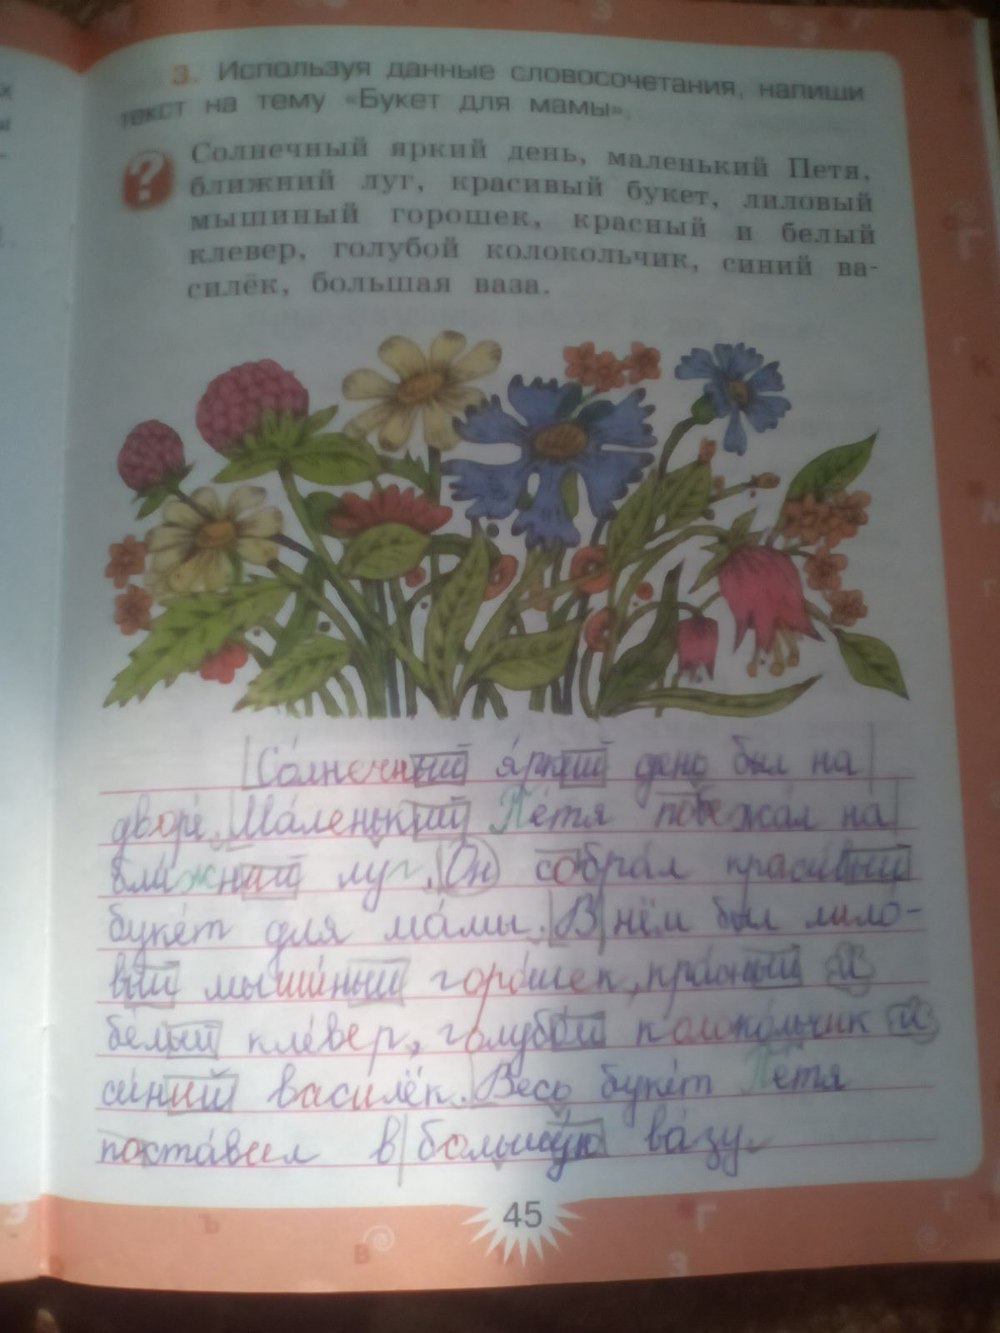 3. Используя данные словосочетания, напиши
текст на тему «Букет для мамы».
?
Солнечный яркий день, маленький Петя,
ближний луг, красивый букет, лиловый
мышиный горошек, красный и белый
клевер, голубой колокольчик, синий ва-
силёк, большая ваза.
Со́лнечный я́ркий день был на
дворе́. Ма́ленький Пе́тя побежа́л на
бли́жний луг. Он собра́л краси́вый
буке́т для ма́мы. В нём был лило́-
вый мыши́ный горо́шек, кра́сный и
бе́лый кле́вер, голубо́й колоко́льчик и
си́ний василёк. Весь буке́т Петя
поста́вил в большу́ю ва́зу.
45